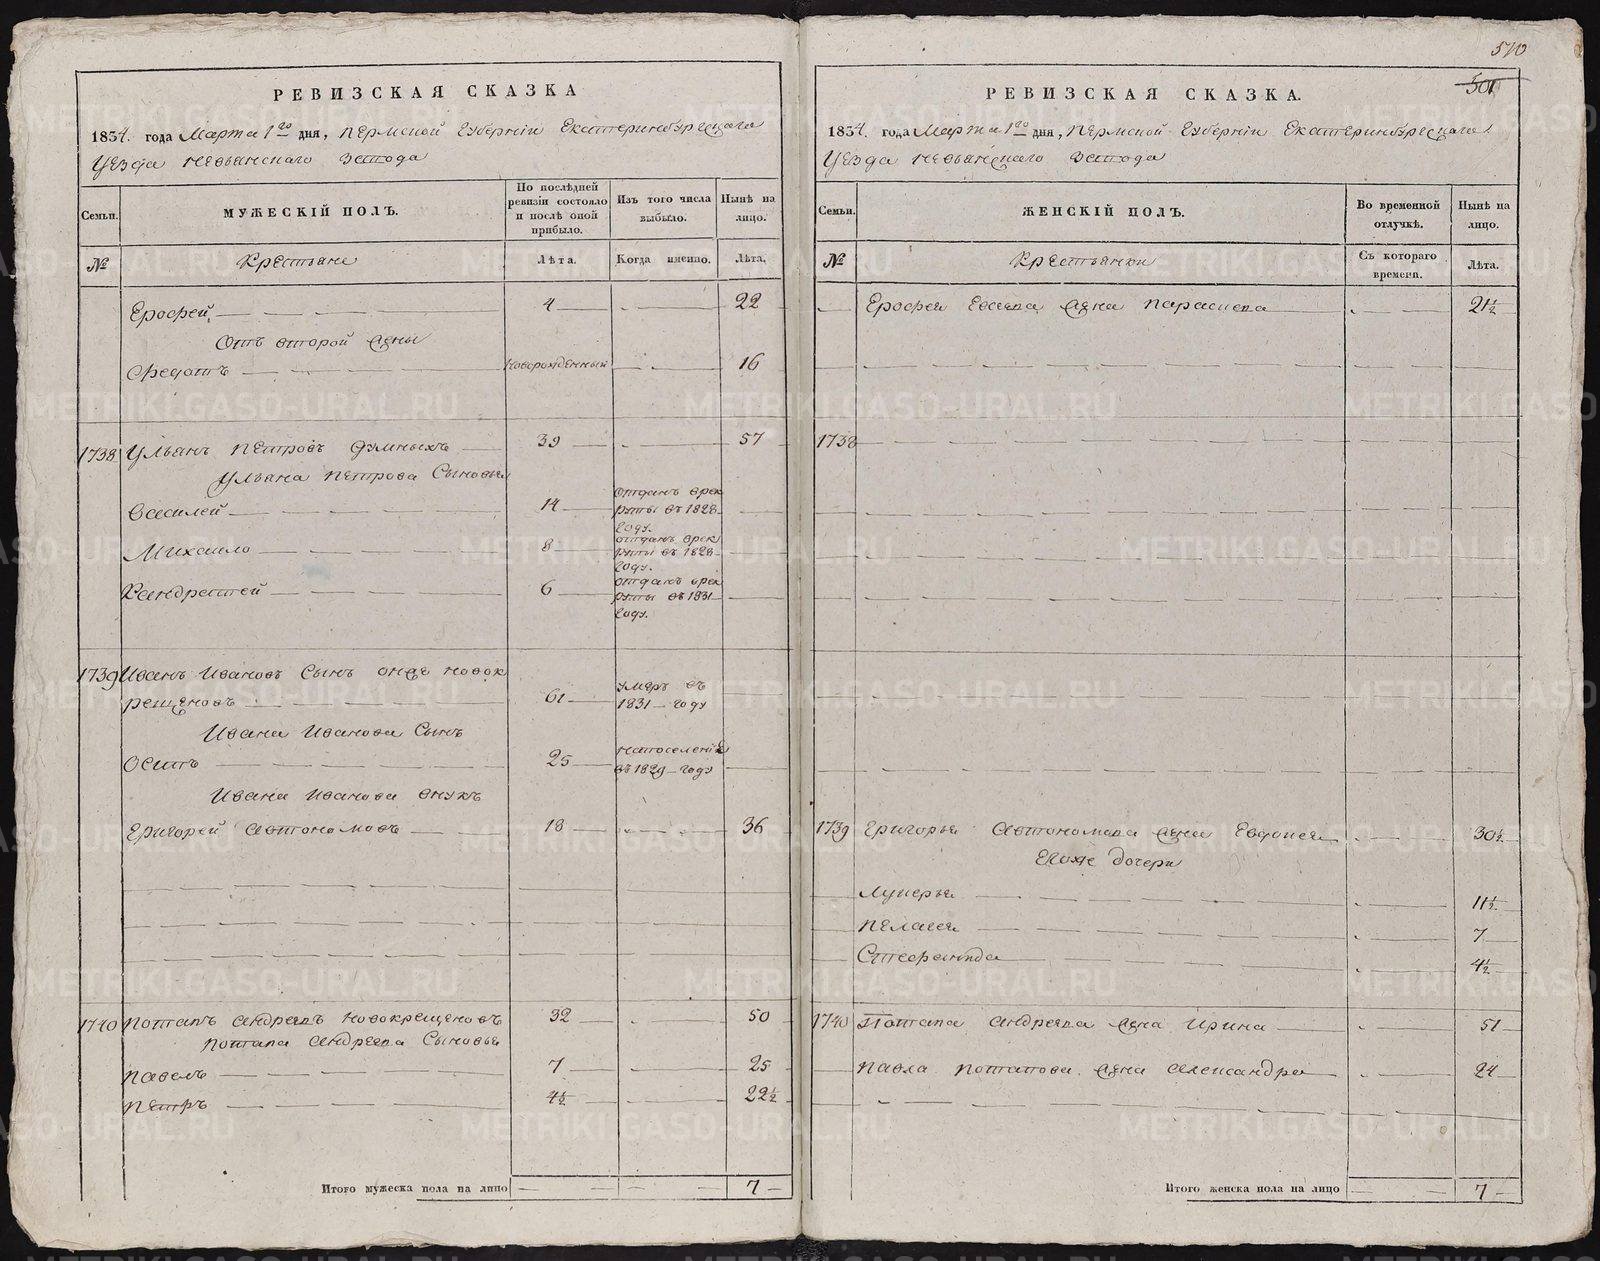 РЕВИЗСКАЯ СКАЗКА
1834. года Марта 1го дня, Пермской Губерніи Екатеринбургскаго
Уезда Невьянскаго завода
Семьи.
МУЖЕСКІЙ ПОЛЪ.
По послѣдней ревизіи состояло и послѣ оной прибыло.
Изъ того числа выбыло.
Нынѣ на лицо.
№
Крестьяне
Лѣта.
Когда именно.
Лѣта.
Ерофей 4 22
Отъ второй жены
Федотъ новорожденный 16
1738 Ульянъ Петровъ Думныхъ 39 57
Ульяна Петрова Сыновья
Василей 14 отданъ врек руты въ 1828 году.
Михаило 8 отданъ врек руты въ 1828 году.
Кандратей 6 отданъ врек руты въ 1831 году.
1739 Иванъ Ивановъ Сынъ онже новок
рещеновъ 61 умеръ въ 1831 году
Ивана Иванова Сынъ
Осипъ 25 напоселеніе въ 1829 году
Ивана Иванова внукъ
Григорей Автономовъ 18 36
1740 Потапъ Андреевъ Новокрещеновъ 32 50
Потапа Андреева Сыновья
Павелъ 7 25
Петръ 4½ 22½
Итого мужеска пола на лицо 7
510
501
РЕВИЗСКАЯ СКАЗКА.
1834. года Марта 1го дня, Пермской Губерніи Екатеринбургскаго
Уезда Невьянскаго завода
Семьи.
ЖЕНСКІЙ ПОЛЪ.
Во временной отлучкѣ.
Нынѣ на лицо.
№
Крестьянки
Съ котораго времени.
Лѣта.
Ерофея Евсеева жена Парасковья 21½
1738
1739 Григорья Автономова жена Евдокея 30½
Егоже дочери
Лукерья 11½
Пелагея 7
Стефанида 4½
1740 Потапа Андреева жена Ирина 51
Павла Потапова жена Александра 24
Итого женска пола на лицо 7
METRIKI.GASO-URAL.RU